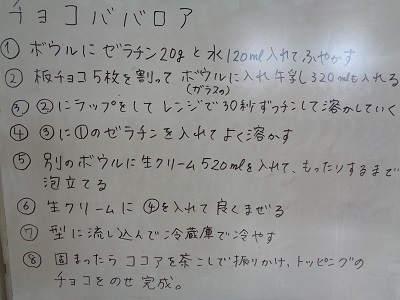 チョコババロア
① ボウルにゼラチン20gと水120ml入れてふやかす
② 板チョコ5枚を割ってボウルに入れ牛乳320mlも入れる
(ガラスの)
③ ②にラップをしてレンジで30秒ずつチンして溶かしていく
④ ③に①のゼラチンを入れてよく溶かす
⑤ 別のボウルに生クリーム520mlを入れて、もったりするまで
泡立てる
⑥ 生クリームに④を入れて良くまぜる
⑦ 型に流し込んで冷蔵庫で冷やす
⑧ 固まったらココアを茶こしで振りかけ、トッピングの
チョコをのせ完成。